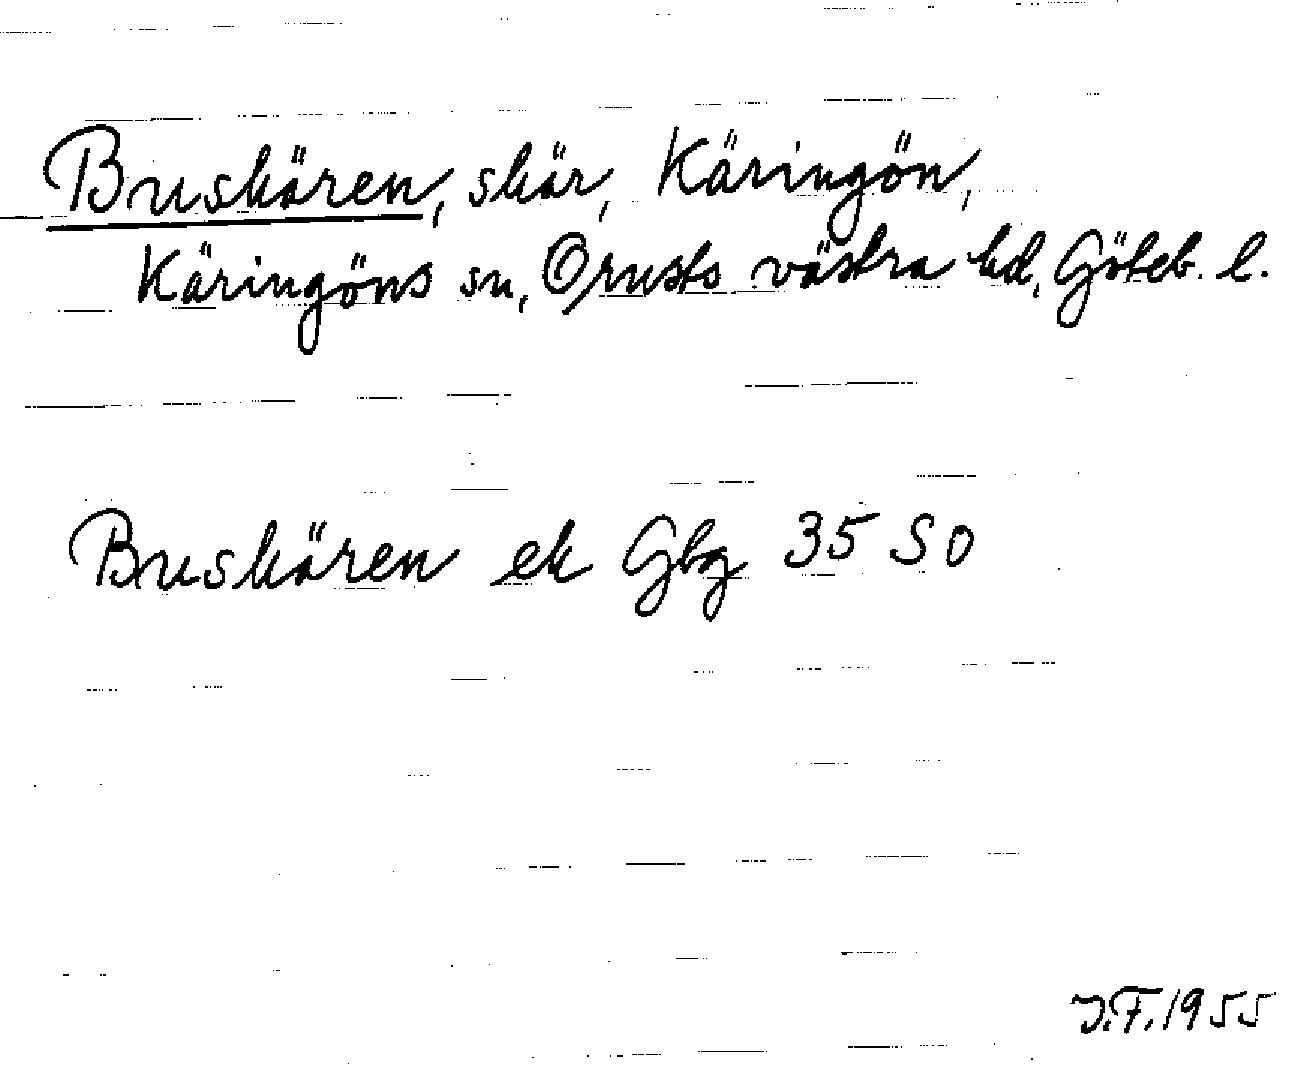 Buskären, skär, Käringön,
Käringöns sn, Orusts västra hd, Göteb. l.
Buskären ek Gbg 35 SO
J.F. 1955